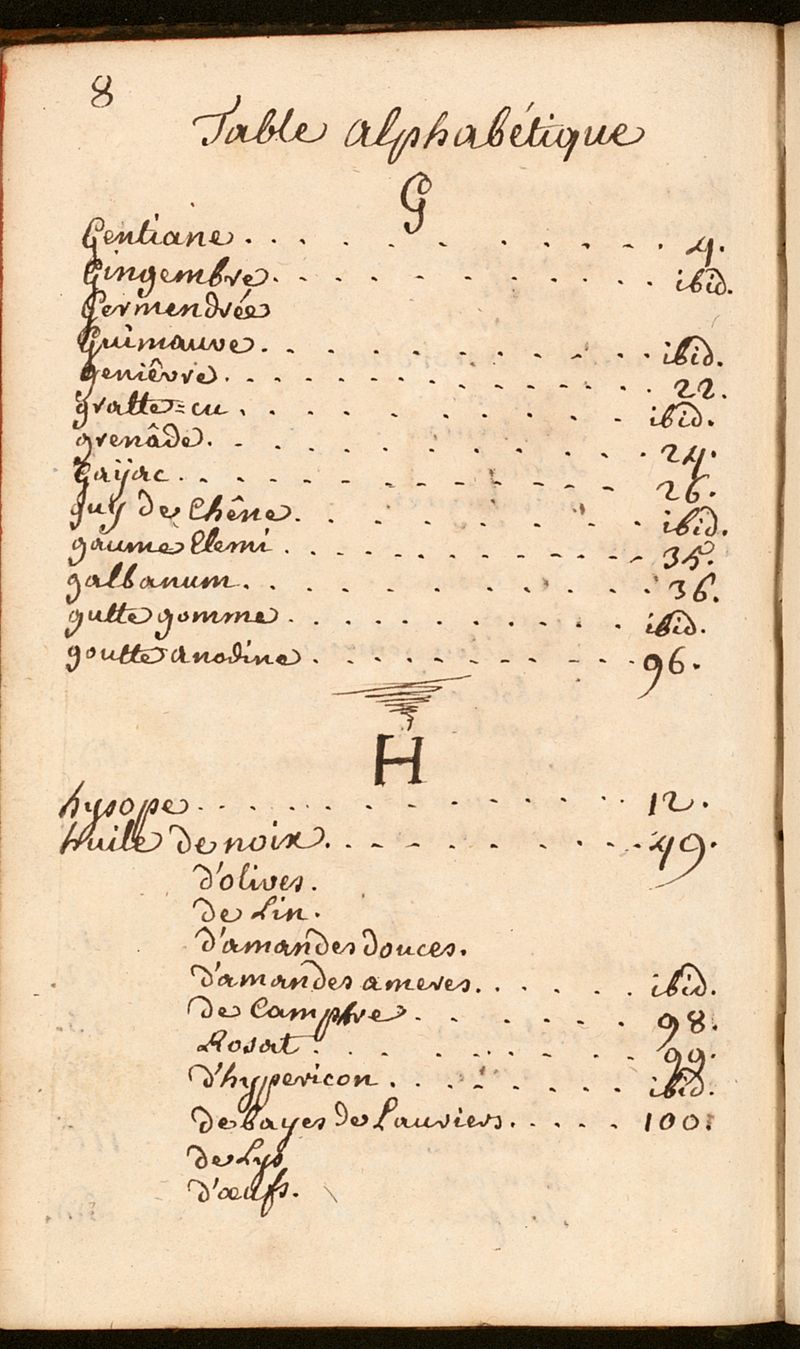 8
Table alphabétique
G
Gentiane . . . . . . . . . . . . 4.
Gingembre . . . . . . . . . . . . ibid.
Germendrée
Guimauve . . . . . . . . . . . . ibid.
genièvre . . . . . . . . . . . . 22.
gratte=cu . . . . . . . . . . . . ibid.
grenâde . . . . . . . . . . . . 24.
Gaÿac . . . . . . . . . . . . 26.
guy de Chêne . . . . . . . . . . . . ibid.
gaume Elemi . . . . . . . . . . . . 35.
galbanum . . . . . . . . . . . . 36.
gutte gomme . . . . . . . . . . . . ibid.
goutte anodine . . . . . . . . . . 96.
H
hysope . . . . . . . . . . . . 12.
huile de noix . . . . . . . . . . 49.
d'olives.
de Lin.
d'amandes douces.
d'amandes ameres . . . . . . ibid.
de Camphre . . . . . . 98.
Rosat . . . . . . . . . 99.
d'hypericon . . . . . . . . ibid.
de bayes de Lauriers . . . . . 100.
de Lys
d'œufs.